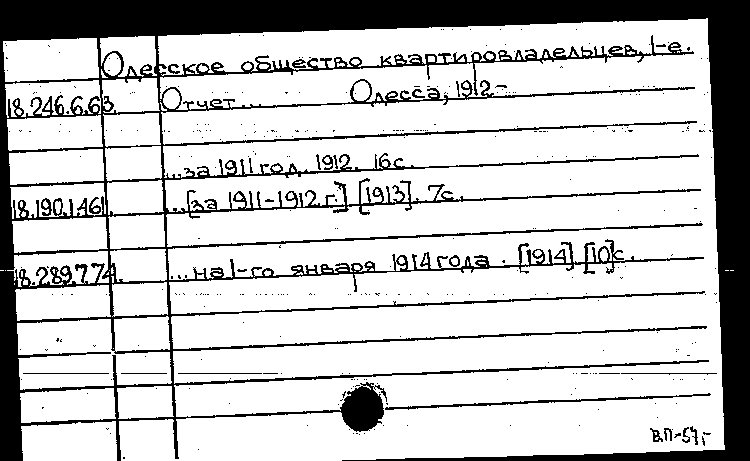 Одесское общество квартировладельцев, 1-е.
18.246.6.63. Отчет... Одесса, 1912-
...за 1911 год. 1912. 16с.
18.190.1.461. ...[за 1911-1912 г.] [1913]. 7с.
18.289.7.74. ...на 1-го января 1914 года. [1914]. [10]с.
В.П-54г